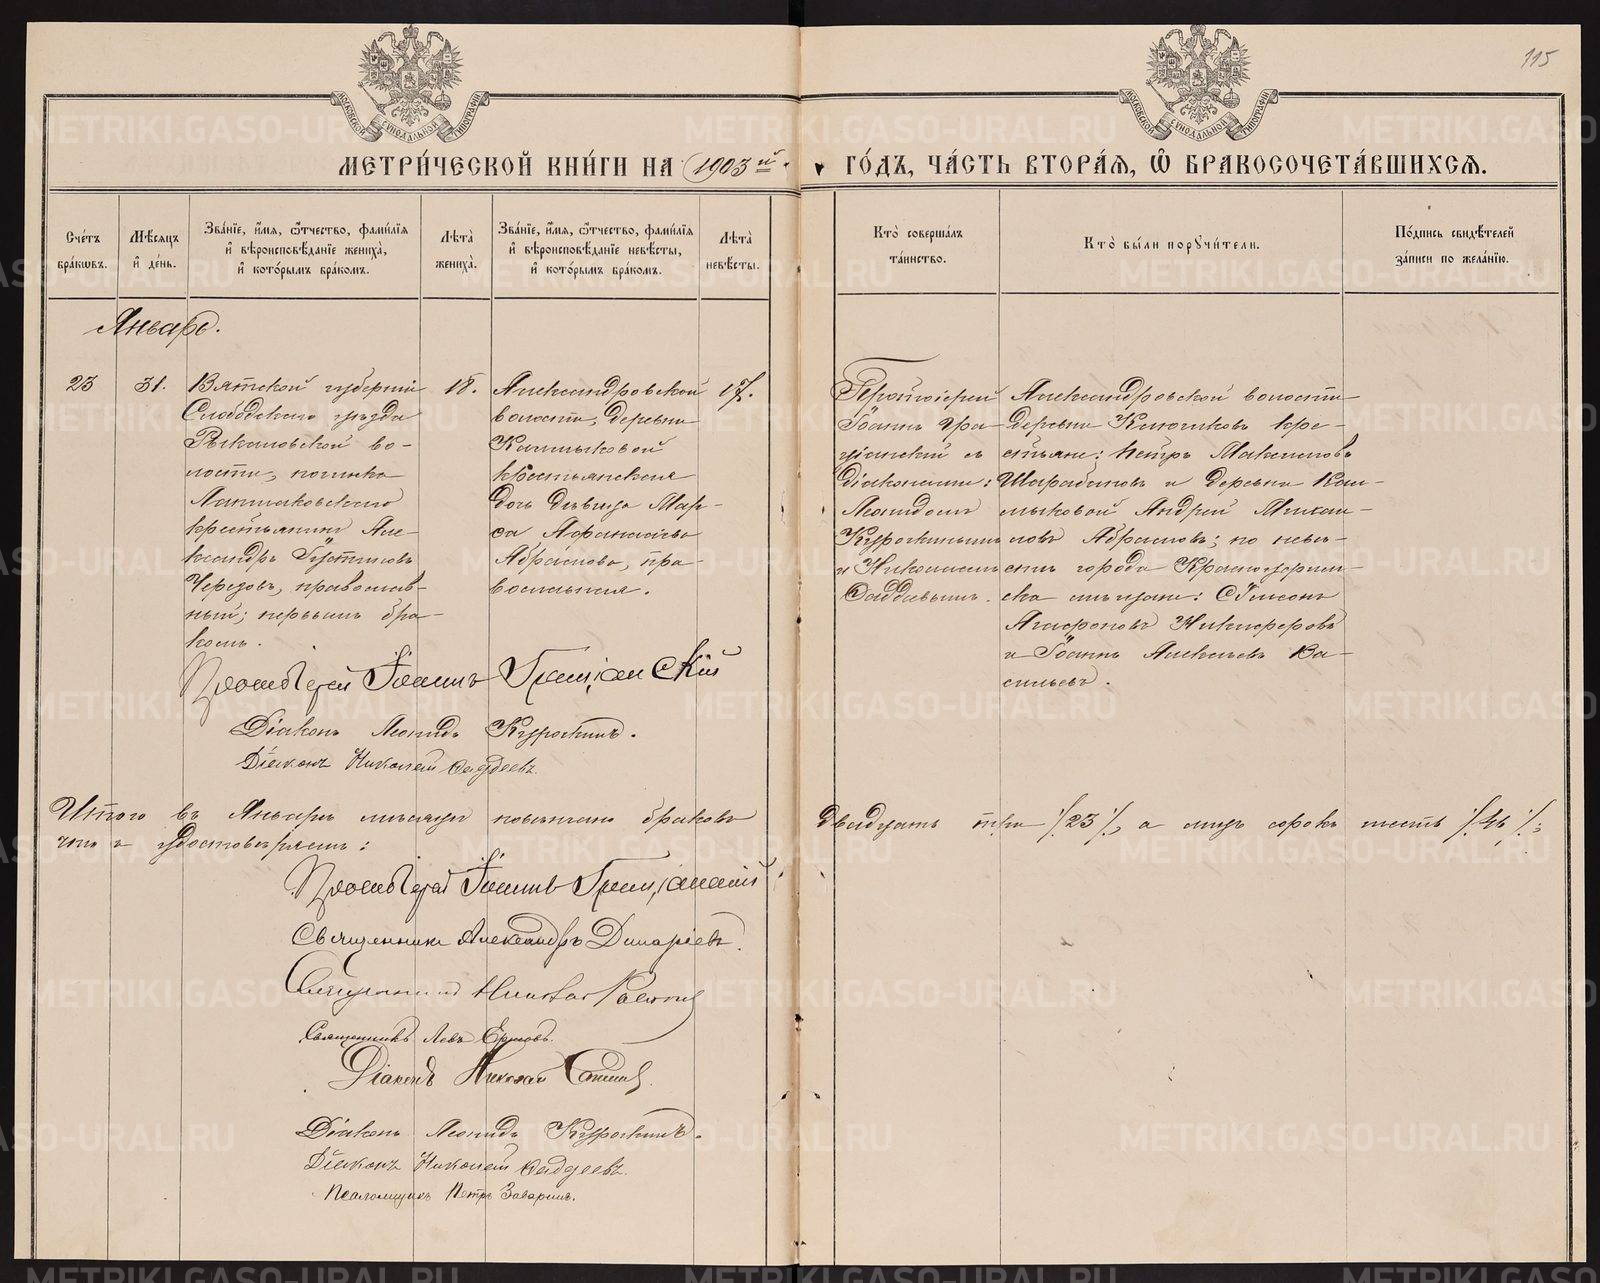 115
МОСКОВСКОЙ СѴНОДАЛЬНОЙ ТИПОГРАФІИ
МОСКОВСКОЙ СѴНОДАЛЬНОЙ ТИПОГРАФІИ
МЕТРИ́ЧЕСКОЙ КНИ́ГИ НА 1903й ГО́ДЪ, ЧА́СТЬ ВТОРА́Ѧ, Ѡ҆ БРАКОСОЧЕТА́ВШИХСѦ.
Сче́тъ бра́кѡвъ.
Мѣ́сяцъ и҆ де́нь.
Зва́нїе, и҆́мѧ, ѻ҆́тчество, фами́лїѧ и҆ вѣроисповѣ́данїе жениха̀, и҆ кото́рымъ бра́комъ.
Лѣ́та жениха̀.
Зва́нїе, и҆́мѧ, ѻ҆́тчество, фами́лїѧ и҆ вѣроисповѣ́данїе невѣ́сты, и҆ кото́рымъ бра́комъ.
Лѣ́та невѣ́сты.
Кто̀ соверша́лъ та́инство.
Кто̀ бы́ли порꙋчи́тели.
По́дпись свидѣ́телей за́писи по жела́нїю.
Январь.
23
31.
Вятской губерніи
Слободскаго уѣзда
волости, починка
крестьянинъ Але-
ксандръ
православ-
ный; первымъ бра-
комъ.
18.
Александровской
волости, деревни
Калмыковой
крестьянская
дочь дѣвица Мар-
ѳа Аѳанасьева
Абрамова, пра-
вославная.
17.
Протоіерей
Іоаннъ Гра-
ціанскій съ
діаконами:
Леонидомъ
Курочкинымъ
и Николаемъ
Фаддѣевымъ.
Александровской волости
деревни Ключиковъ кре-
стьяне: Петръ Максимовъ
и деревни Кал-
мыковой Андрей Михаи-
ловъ Абрамовъ; по невѣ-
стѣ города Красноуфим-
ска мѣщане: Сѵмеонъ
Агафоновъ Никифоровъ
и Іоаннъ Алексѣевъ Ва-
сильевъ.
Протоіерей Іоаннъ Граціанскій
Діаконъ Леонидъ Курочкинъ.
Діаконъ Николай Фаддеевъ.
Итого въ Январѣ мѣсяцѣ повѣнчано браковъ двадцать три /23/, а лицъ сорокъ шесть /46/;
что и удостовѣряемъ:
Протоіерей Іоаннъ Граціанскій
Священникъ Александръ
Священникъ
Священникъ Левъ Ершовъ.
Діаконъ Николай
Діаконъ Леонидъ Курочкинъ.
Діаконъ Николай Фаддеевъ.
Псаломщикъ Петръ
METRIKI.GASO-URAL.RU